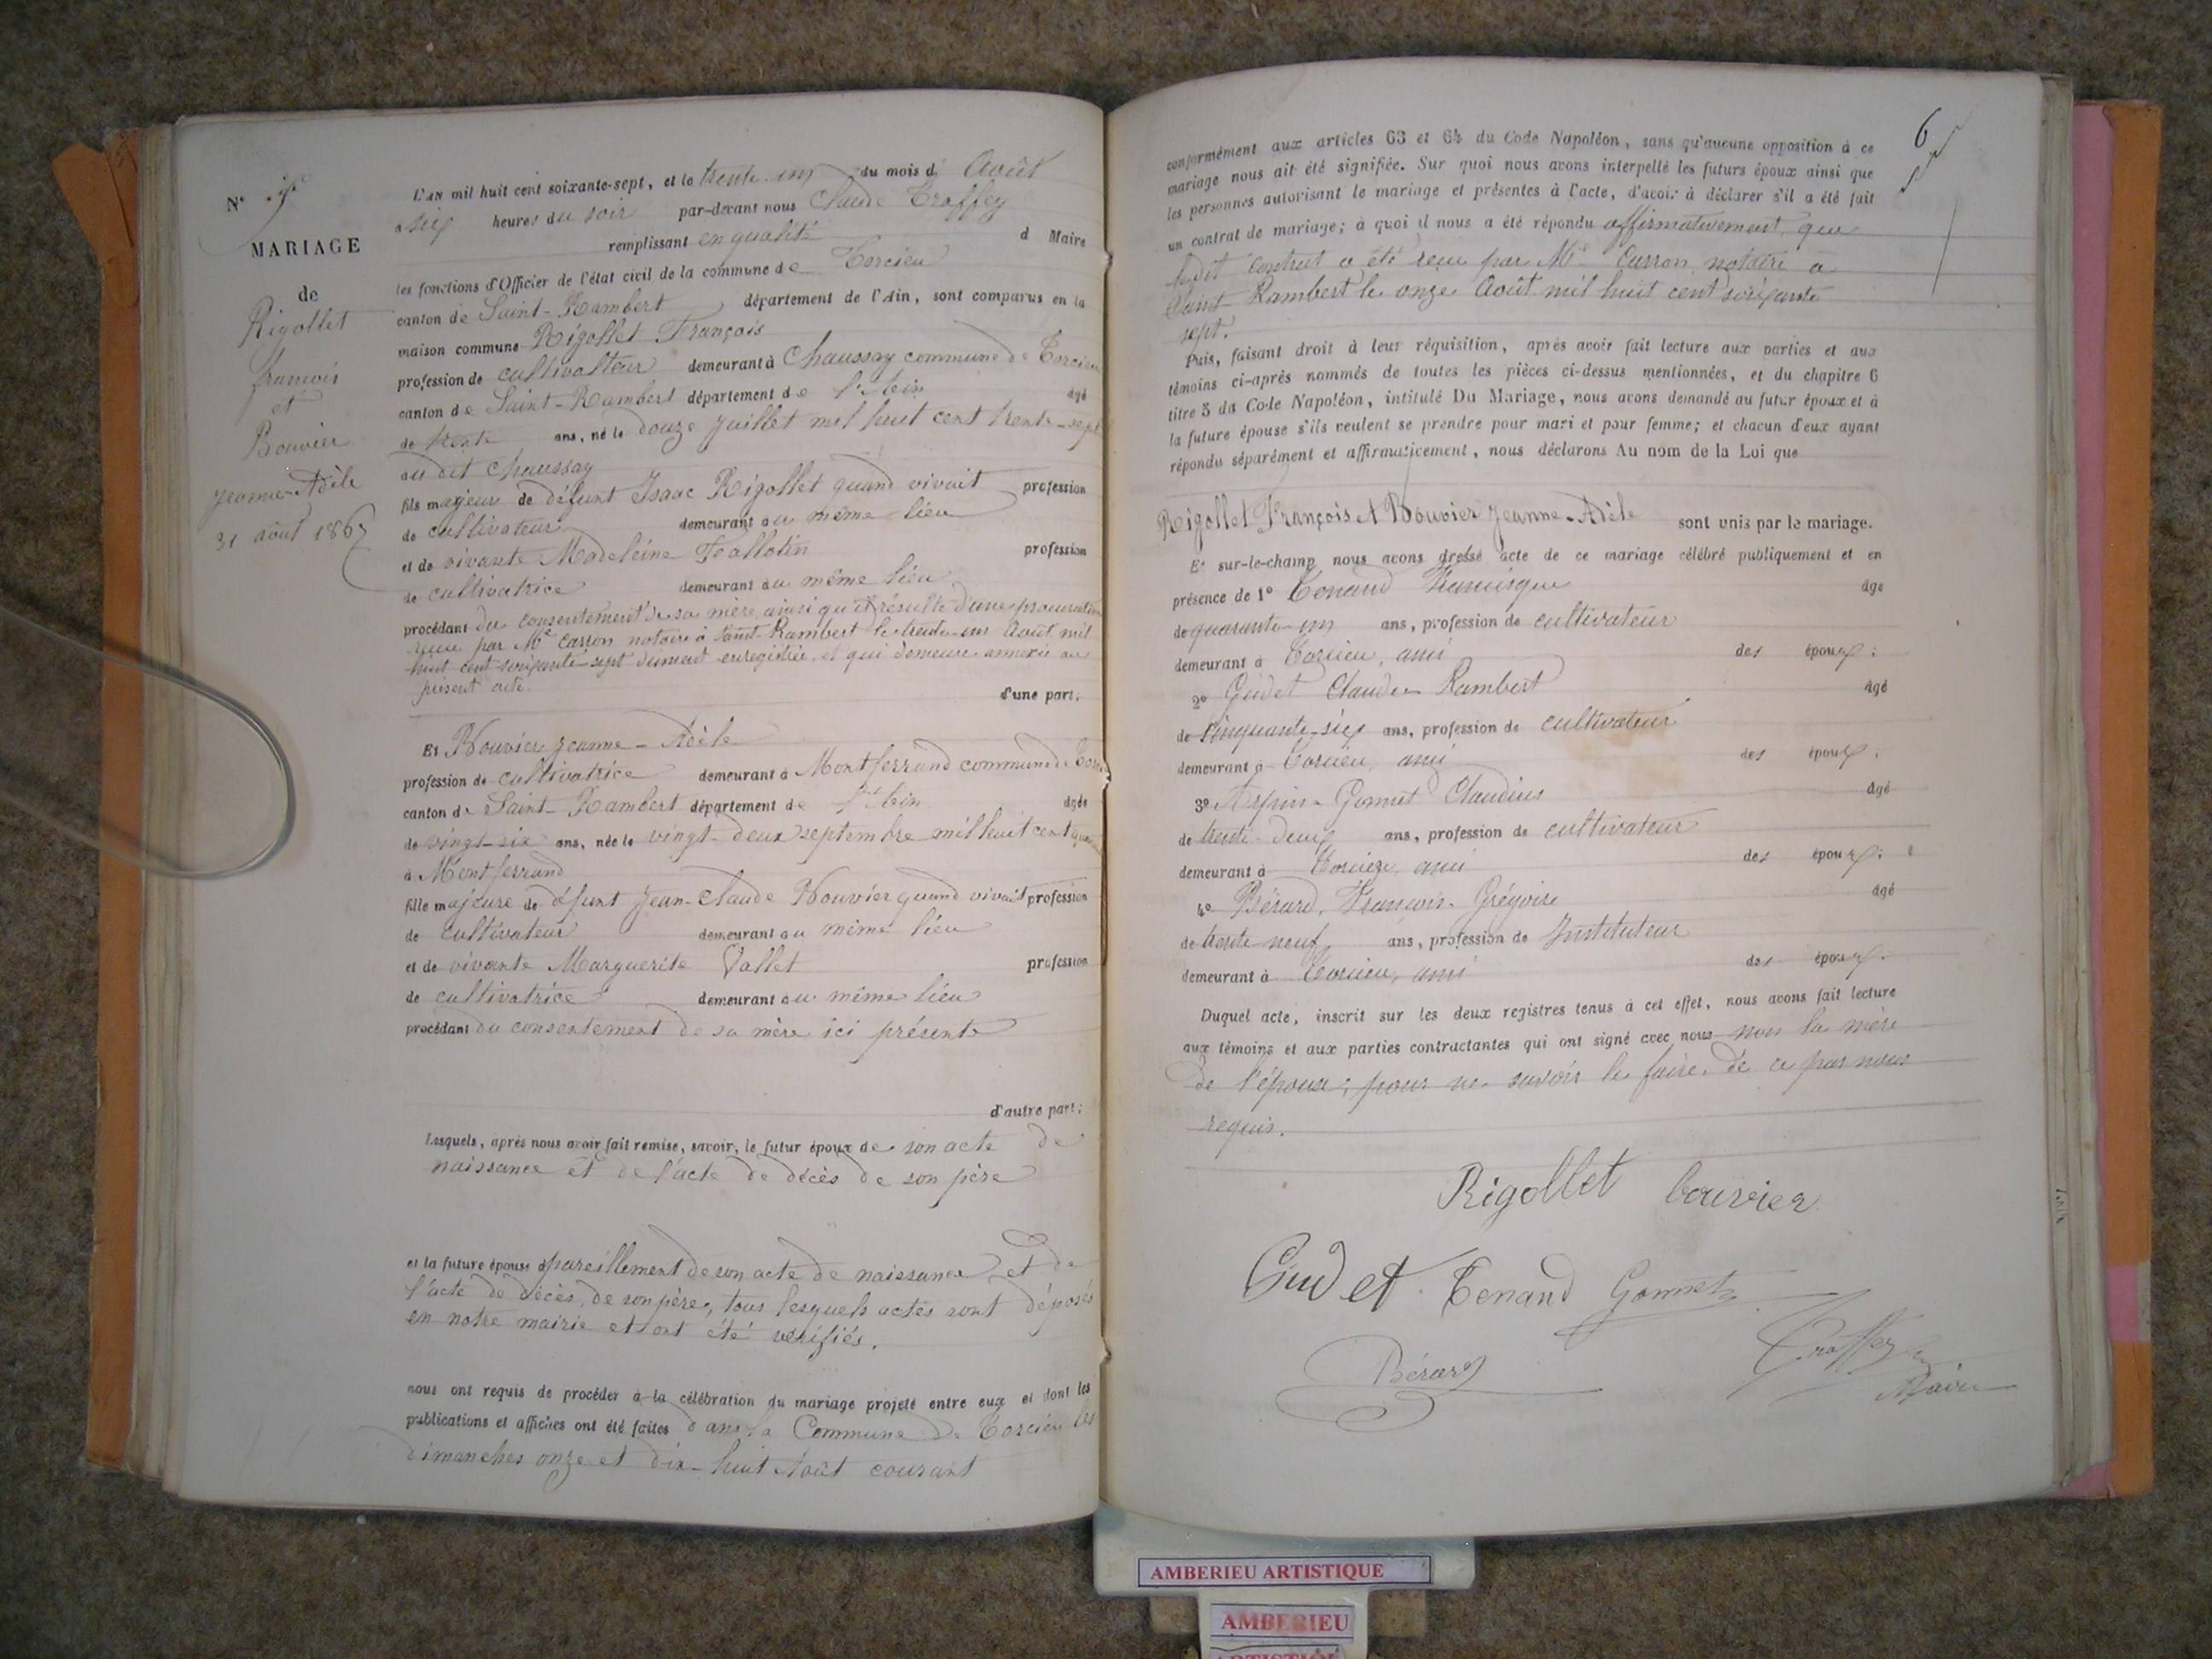 N°
MARIAGE
de
Rigollet
françois
et
Bouvier
Jeanne-Adèle
31 août 1867
L'an mil huit cent soixante-sept, et le trente-un du mois d' Août
à six heures du soir par-devant nous Claude Troffey
remplissant en qualité d Maire
les fonctions d'Officier de l'état civil de la commune de Torcieu
canton de Saint-Rambert département de l'Ain, sont comparus en la
maison commune Rigollet François
profession de cultivateur demeurant à Chaussay commune de Torcieu
canton de Saint-Rambert département de l'Ain âgé
de trente ans, né le douze Juillet mil huit cent trente-sept
au dit Chaussay
fils majeur de défunt Isaac Rigollet quand vivait profession
de cultivateur demeurant au même lieu
et de vivante Madeleine Tallotin profession
de cultivatrice demeurant au même lieu
procédant du consentement de sa mère, ainsi qu'il résulte d'une procuration
reçue par Me Carron notaire à Saint-Rambert le trente-un Août mil
huit cent soixante-sept dument enregistrée, et qui demeure annexée au
présent acte.
d'une part.
Et Bouvier Jeanne-Adèle
profession de cultivatrice demeurant à Montferrand commune de
canton de Saint-Rambert département de l'Ain âgée
de vingt-six ans, née le vingt-deux septembre mil huit cent
à Montferrand
fille majeure de défunt Jean-Claude Bouvier quand vivait profession
de cultivateur demeurant au même lieu
et de vivante Marguerite Vallet profession
de cultivatrice demeurant au même lieu
procédant du consentement de sa mère ici présente
d'autre part:
Lesquels, après nous avoir fait remise, savoir, le futur époux de son acte de
naissance et de l'acte de décès de son père
et la future épouse pareillement de son acte de naissance et de
l'acte de décès de son père, tous lesquels actes sont déposés
en notre mairie et ont été vérifiés.
nous ont requis de procéder à la célébration du mariage projeté entre eux et dont les
publications et affiches ont été faites dans la Commune de Torcieu les
dimanches onze et dix-huit Août courant
6
conformément aux articles 63 et 64 du Code Napoléon, sans qu'aucune opposition à ce
mariage nous ait été signifiée. Sur quoi nous avons interpellé les futurs époux ainsi que
les personnes autorisant le mariage et présentes à l'acte, d'avoir à déclarer s'il a été fait
un contrat de mariage; à quoi il nous a été répondu affirmativement, que
ledit contrat a été reçu par Me Carron, notaire à
Saint-Rambert le onze Août mil huit cent soixante
sept.
Puis, faisant droit à leur réquisition, après avoir fait lecture aux parties et aux
témoins ci-après nommés de toutes les pièces ci-dessus mentionnées, et du chapitre 6
titre 5 du Code Napoléon, intitulé Du Mariage, nous avons demandé au futur époux et à
la future épouse s'ils veulent se prendre pour mari et pour femme; et chacun d'eux ayant
répondu séparément et affirmativement, nous déclarons Au nom de la Loi que
Rigollet François et Bouvier Jeanne-Adèle sont unis par le mariage.
Et sur-le-champ nous avons dressé acte de ce mariage célébré publiquement et en
présence de 1° Tenand Francisque âgé
de quarante-un ans, profession de cultivateur
demeurant à Torcieu, ami des époux;
2° Gudet Claude Rambert âgé
de cinquante-six ans, profession de cultivateur
demeurant à Torcieu, ami des époux;
3° Gonnet Claudius âgé
de trente-deux ans, profession de cultivateur
demeurant à Torcieu, ami des époux;
4° Bérard, François-Grégoire âgé
de trente-neuf ans, profession de Instituteur
demeurant à Torcieu, ami des époux.
Duquel acte, inscrit sur les deux registres tenus à cet effet, nous avons fait lecture
aux témoins et aux parties contractantes qui ont signé avec nous non la mère
de l'épouse, pour ne savoir le faire, de ce par nous
requis.
Rigollet bouvier
Gudet Tenand Gonnet
Bérard Troffey
Maire
AMBERIEU ARTISTIQUE
AMBERIEU
ARTISTIQUE